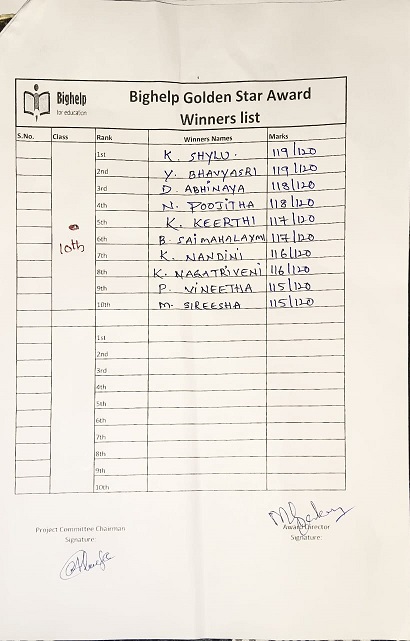 Bighelp
for education
Bighelp Golden Star Award
Winners list
S.No. Class Rank Winners Names Marks
1st K. SHYLU. 119/120
2nd Y. BHAVYASRI 119/120
3rd D. ABHINAYA 118/120
4th N. POOJITHA 118/120
5th K. KEERTHI 117/120
10th
6th B. SAIMAHALAXMI 117/120
7th K. NANDINI 116/120
8th K. NAGATRIVENI 116/120
9th P. VINEETHA 115/120
10th M. SIREESHA 115/120
1st
2nd
3rd
4th
5th
6th
7th
8th
9th
10th
Project Committee Chairman
Signature:
Award Director
Signature: